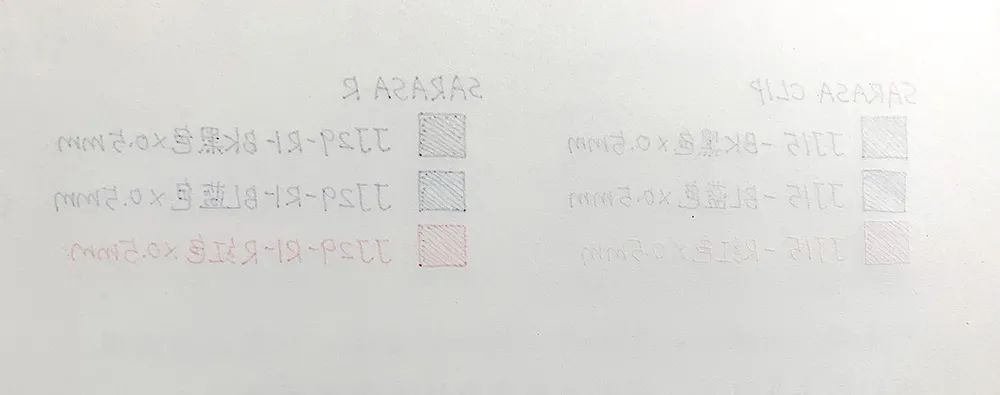 SARASA CLIP
JJ15-BK黑色×0.5mm
JJ15-BL蓝色×0.5mm
JJ15-R红色×0.5mm
SARASA R
JJ29-R1-BK黑色×0.5mm
JJ29-R1-BL蓝色×0.5mm
JJ29-R1-R红色×0.5mm